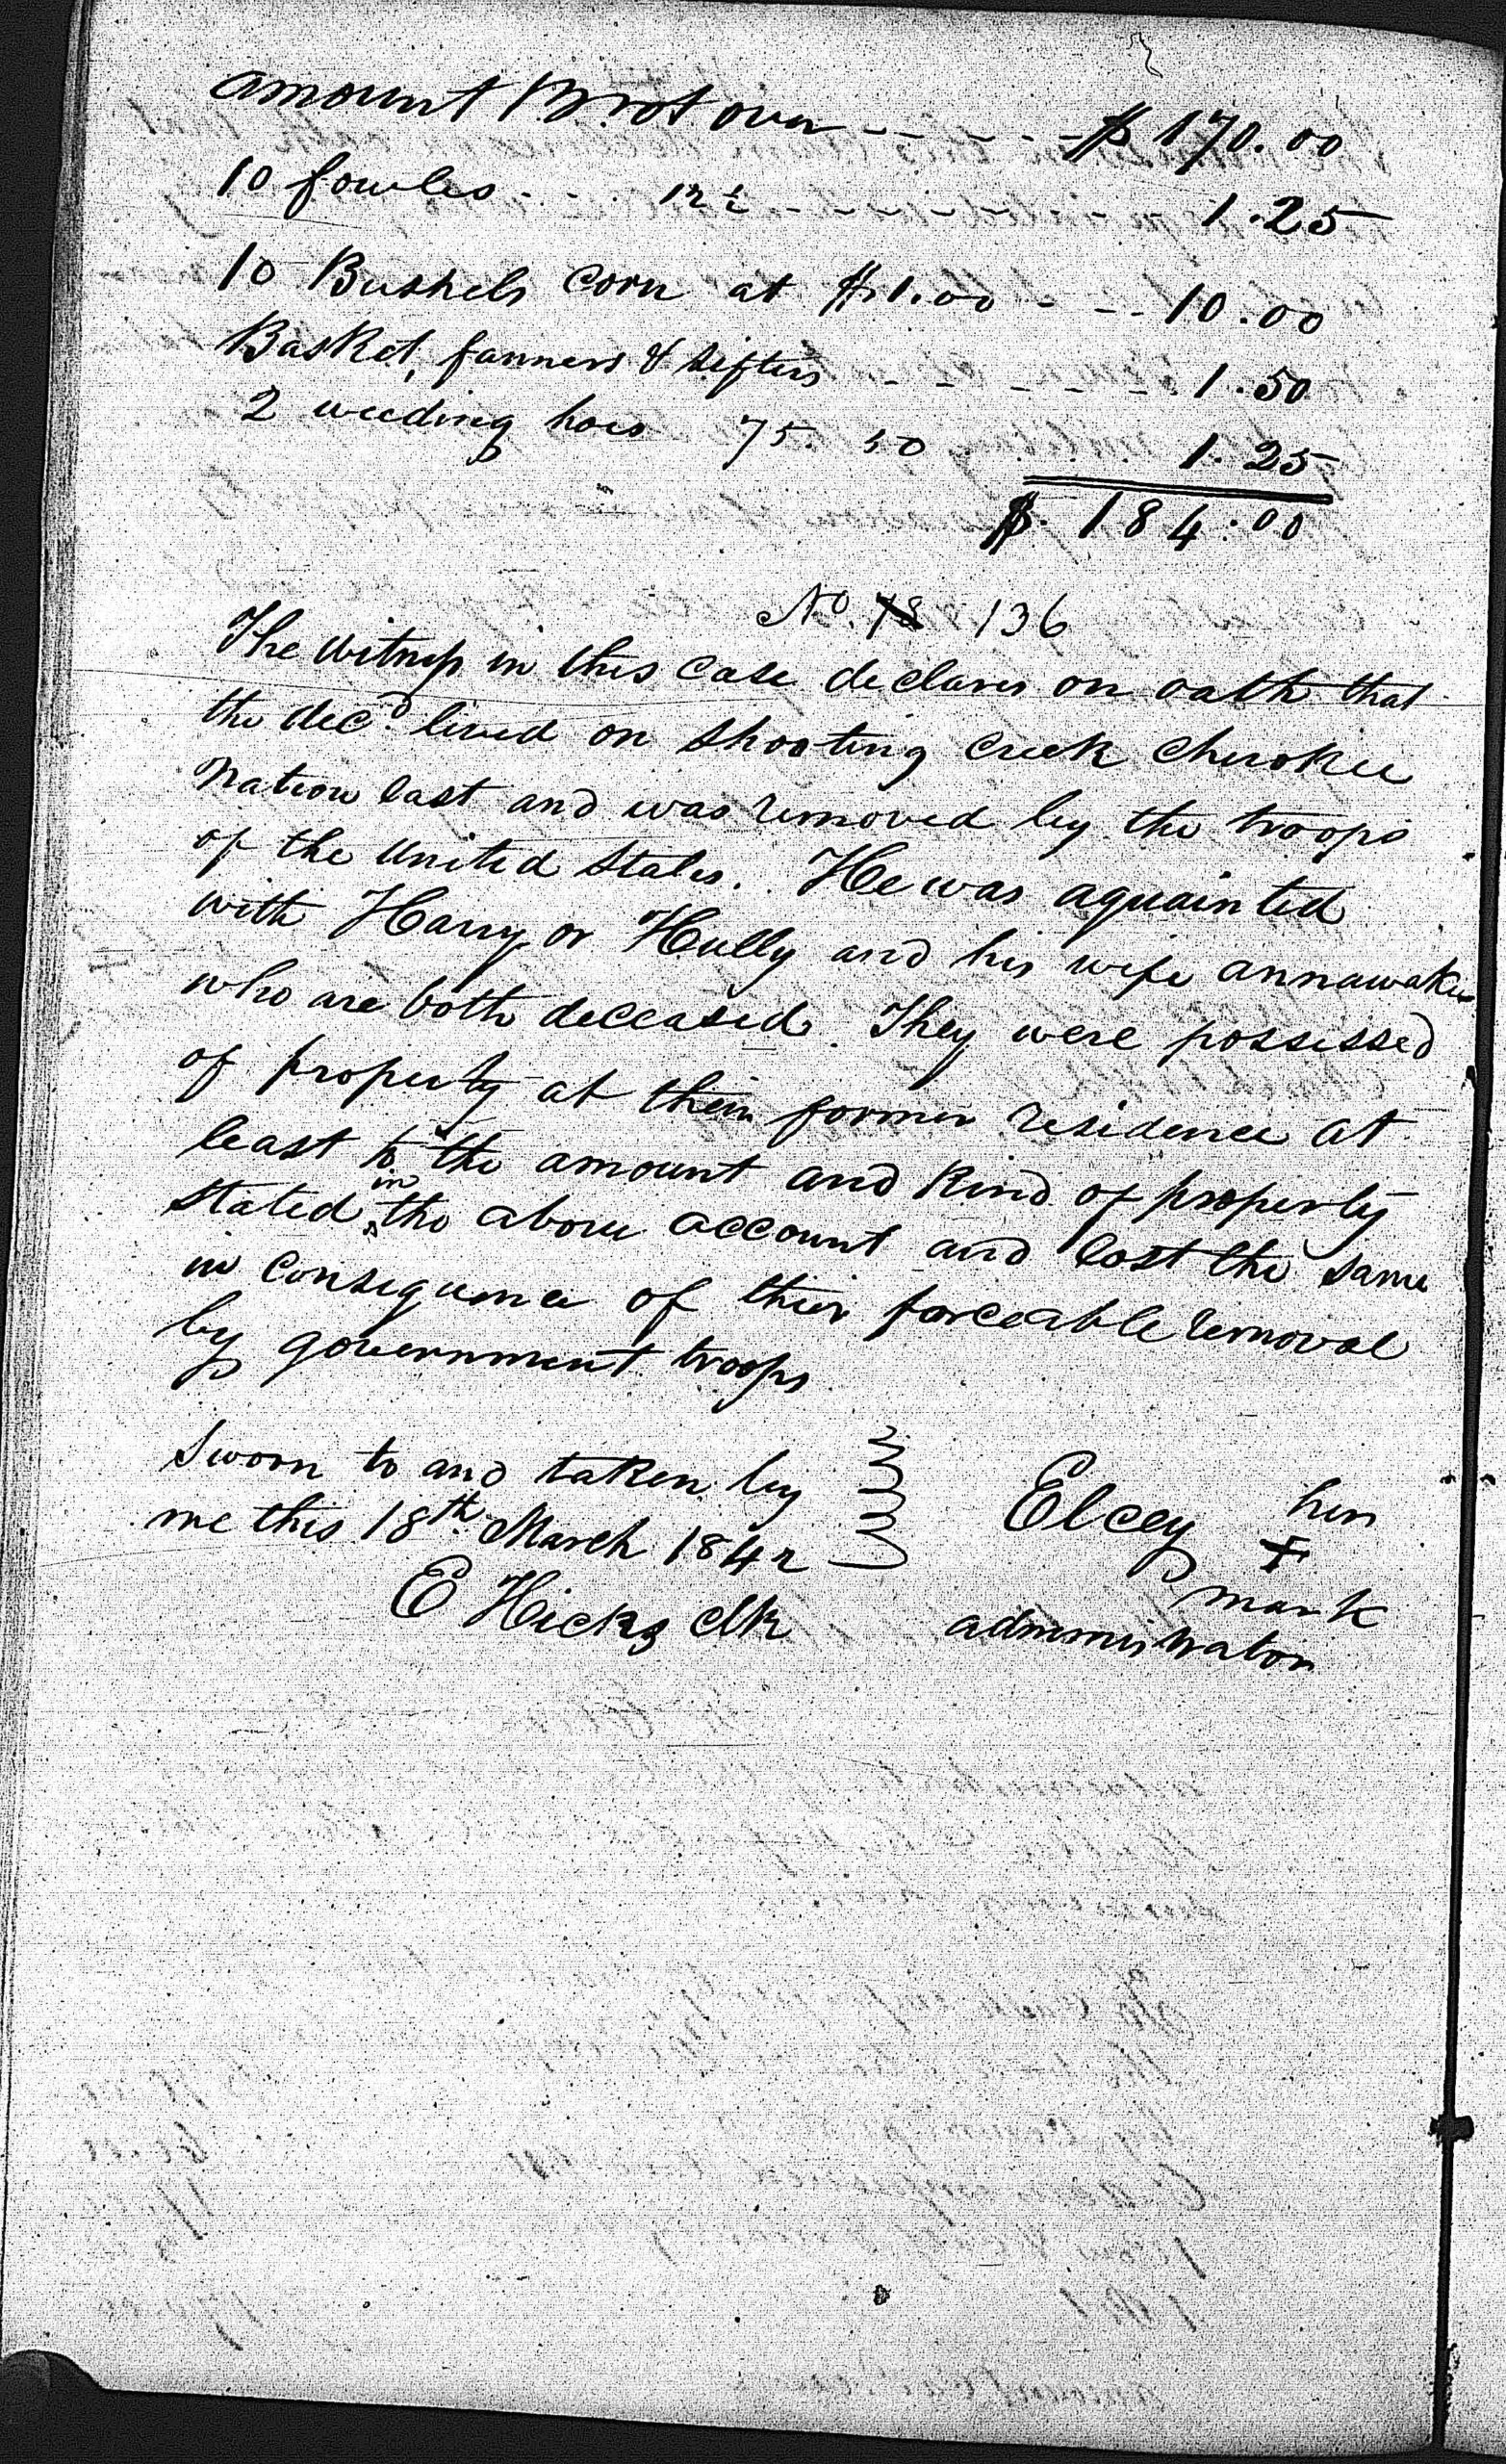 amount Brot over - - - - - $ 170.00
10 fowles - - . 12 ½ - - - - - - - 1.25
10 Bushels corn at $1.00 - - - 10.00
Basket, fanners & sifters - - - - - 1.50
2 weeding hoes 75. 50 . . . . 1.25
$. 184.00
No. 18 136
The Witness in this case declares on oath that
the decd. lived on Shooting Creek Cherokee
Nation East and was removed by the troops
of the United States. He was aquainted
with Harry or Hully and his wife annawake
who are both deceased. They were possessed
of property at their former residence at
least to the amount and kind of property
stated in the above account and lost the same
in consequence of thier forceable removal
by government troops
Sworn to and taken by
me this 18th March 1842
E Hicks clk
Elcey her
+
mark
administrator